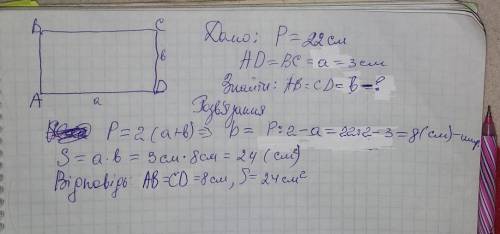 B C
Дано: P = 22 см
AD = BC = a = 3 см
в
Знайти: AB = CD = в - ?
A D
a
Розв'язання
P = 2(a+в) => в = P:2-a = 22:2-3 = 8 (см) - шир
S = a·в = 3см·8см = 24 (см²)
Відповідь: AB = CD = 8см, S = 24см²